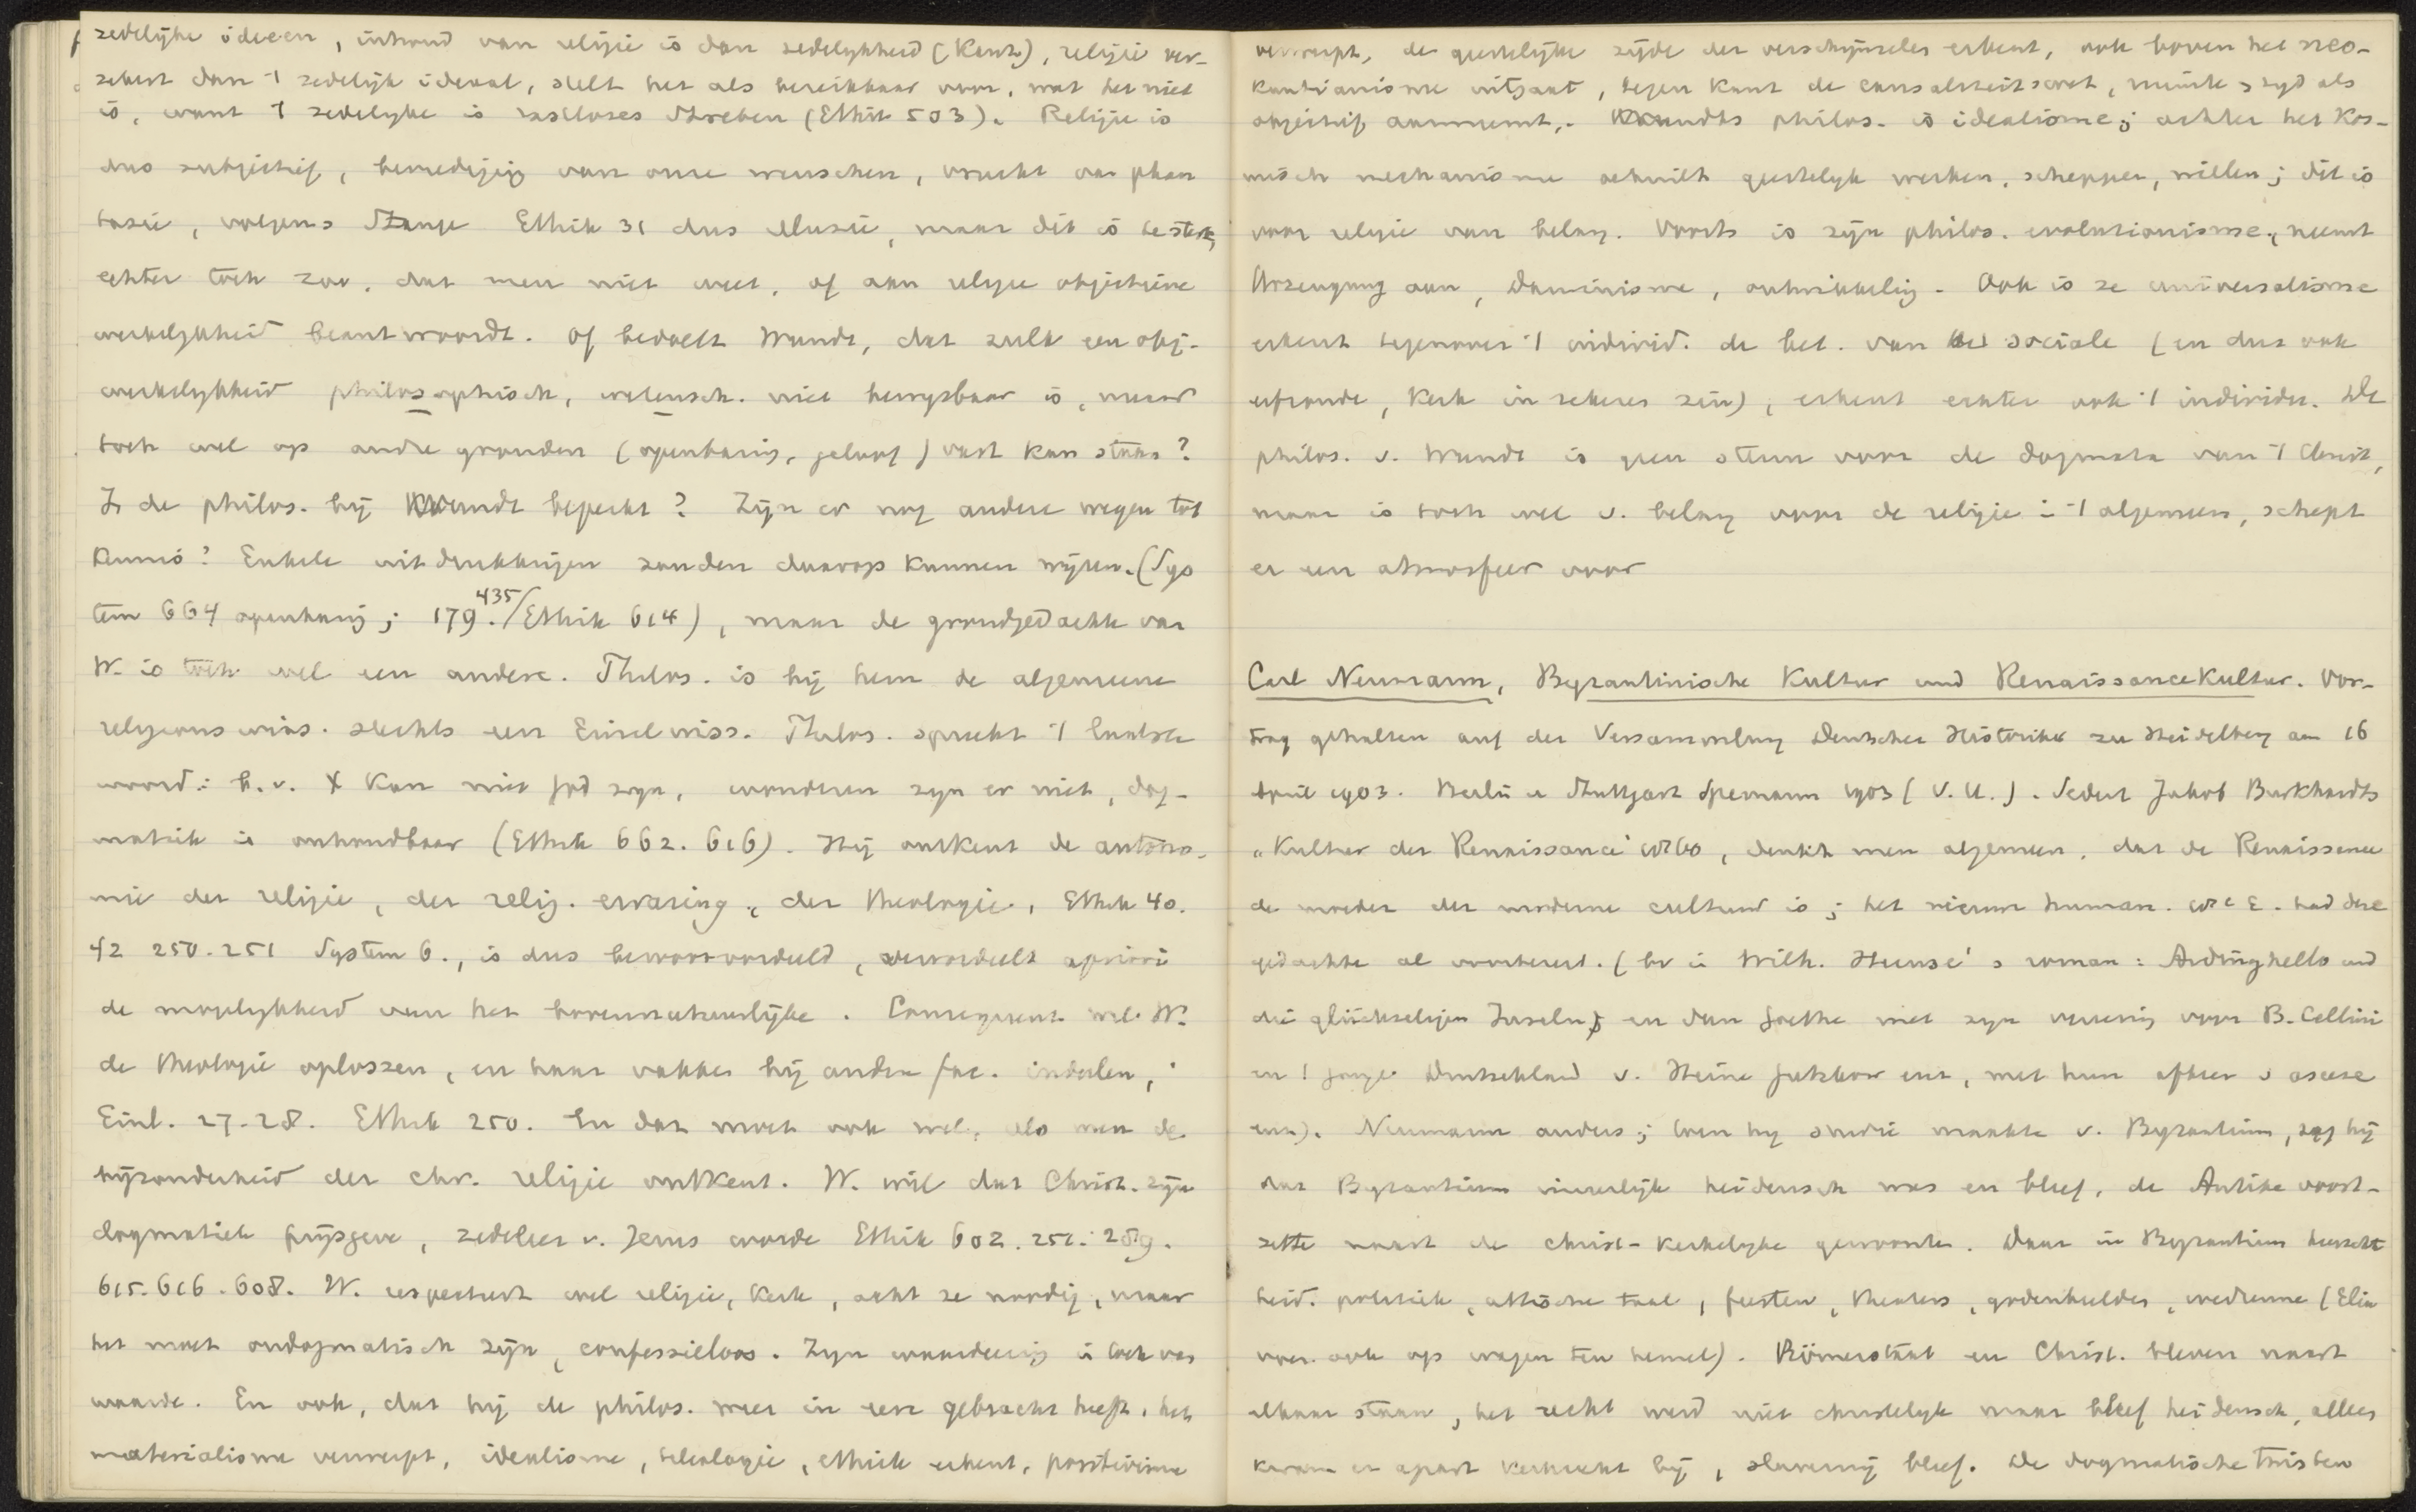 zedelijke ideeën, inhoud van religie is dan zedelijkheid (Kant), religie ver-
zekert dan 't zedelijk ideaal, stelt het als bereikbaar voor, wat het niet
is, want 't zedelijke is rastloses Streben (Ethik 503). Religie is
dus subjectief, bevrediging van onze wenschen, vrucht van phan
tasie, volgens Stange Ethik 31 dus illusie, maar dit is te sterk,
echter toch zoo, dat men niet weet, of aan religie objectieve
werkelijkheid beantwoordt. Of bedoelt Wundt, dat zulk een obj.
werkelijkheid philosophisch, wetensch. niet bewijsbaar is, maar
toch wel op andre gronden (openbaring, geloof) vast kan staan?
Is de philos. bij Wundt beperkt? Zijn er nog andere wegen tot
kennis? Enkele uitdrukkingen zouden daarop kunnen wijzen. (Sys
tem 664 openbaring; 179. 435/Ethik 614), maar de grondgedachte van
W. is toch wel een andere. Philos. is bij hem de algemeene
religionswiss. slechts een Einzelwiss. Philos. spreekt 't laatste
woord: b.v. X kan niet God zijn, wonderen zijn er niet, dog-
matiek is onhoudbaar (Ethik 662. 616). Hij ontkent de autono-
mie der religie, der relig. ervaring, der theologie, Ethik 40.
42 250-251 System 6., is dus bevooroordeeld, veroordeelt apriori
de mogelijkheid van het bovennatuurlijke. Consequent wil W.
de theologie oplossen, en haar vakken bij andre fac. indeelen,
Einl. 27-28. Ethik 250. En dat moet ook wel, als men de
bijzonderheid der chr. religie ontkent. W. wil dat Christ. zijn
dogmatiek prijsgeve, zedeleer v. Jezus worde Ethik 602. 251. 259.
615. 616. 608. W. respecteert wel religie, kerk, acht ze noodig, maar
het moet ondogmatisch zijn, confessieloos. Zijn waardeering is toch van
waarde. En ook, dat hij de philos. weer in eere gebracht heeft, het
materialisme verwerpt, idealisme, teleologie, ethiek erkent, positivisme
verwerpt, de geestelijke zijde der verschijnselen erkent, ook boven het neo-
kantianisme uitgaat, tegen Kant de causaliteitswet, ruimte, tijd als
objectief aanneemt. Wundts philos. is idealisme; achter het kos-
misch mechanisme schuilt geestelijk werken, scheppen, willen; dit is
voor religie van belang. Voorts is zijn philos. evolutionisme, neemt
Urzeugung aan, Darwinisme, ontwikkeling. Ook is ze universalisme
erkent tegenover 't individ. de bet. van het sociale (en dus ook
erfzonde, kerk in zekeren zin), erkent echter ook 't individu. De
philos. v. Wundt is geen steun voor de dogmata van 't Christ,
maar is toch wel v. belang voor de religie i 't algemeen, schept
er een atmosfeer voor
Carl Neumann, Byzantinische Kultur und Renaissancekultur. Vor-
trag gehalten auf der Versammlung Deutscher Historiker zu Heidelberg am 16
April 1903. Berlin u Stuttgart Spemann 1903 (V. U.). Sedert Jakob Burkhardts
„Kultur der Renaissance" 1860, denkt men algemeen, dat de Renaissance
de moeder der moderne cultuur is; het nieuwe human. 18e E. had deze
gedachte al voorbereid. (bv in Wilh. Heinse's roman: Ardinghello und
die glückseligen Inseln, en dan Goethe met zijn vereering voor B. Cellini
en 't jonge Deutschland v. Heine Gutzkow enz, met hun afkeer v ascese
enz). Neumann anders; toen hij studie maakte v. Byzantium, zag hij
dat Byzantium innerlijk heidensch was en bleef, de Antike voort-
zette naast de christ-kerkelijke gewoonte. Daar in Byzantium heerscht
heid. politiek, attische taal, feesten, theaters, godenbeelden, wedrennen (Elia
voer ook op wagen ten hemel). Römerstaat en Christ. bleven naast
elkaar staan, het recht werd niet christelijk maar bleef heidensch, alleen
kwam er apart kerkrecht bij, slavernij bleef. De dogmatische twisten